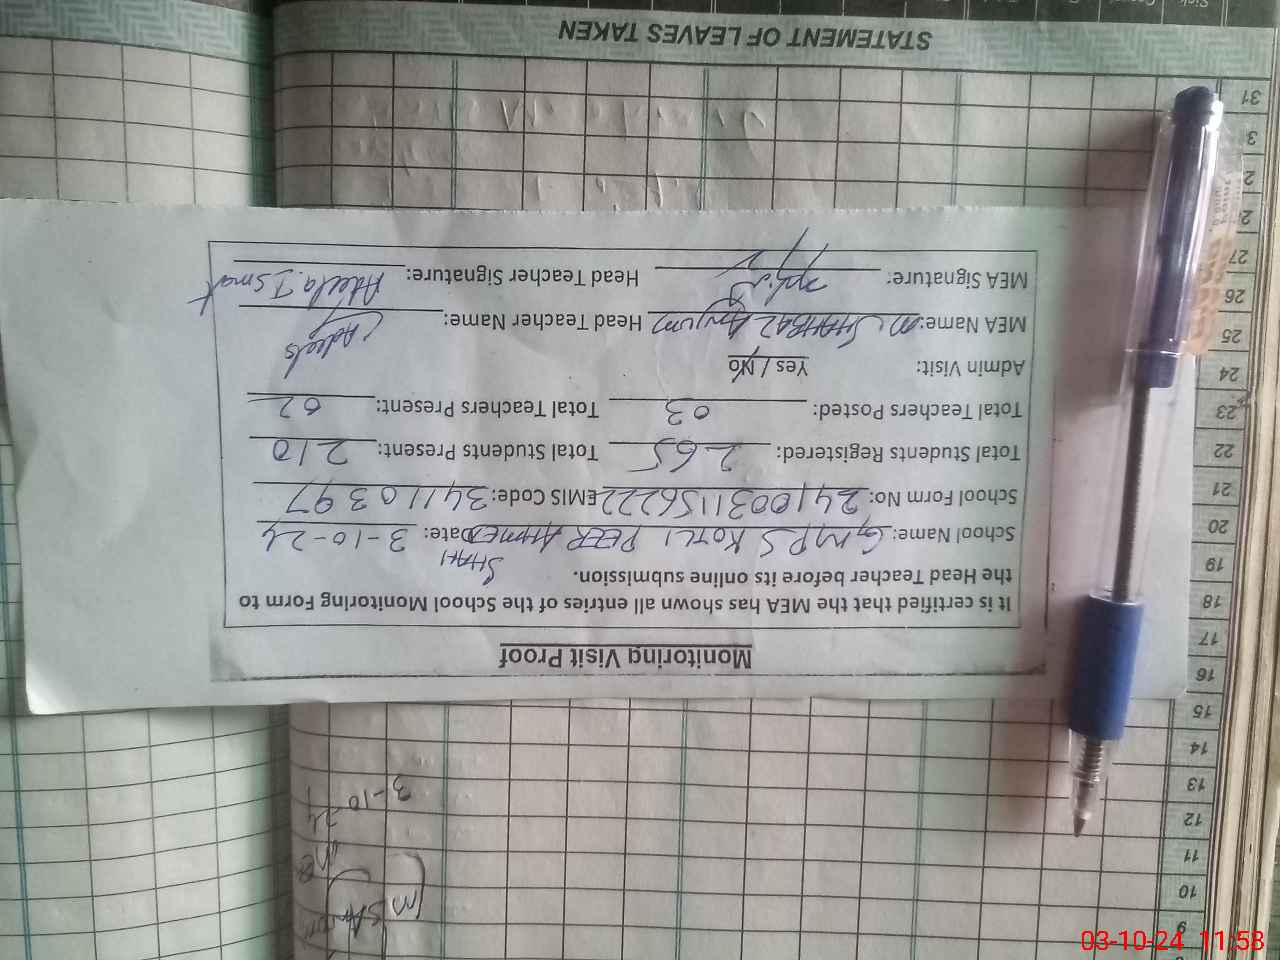 Monitoring Visit Proof
It is certified that the MEA has shown all entries of the School Monitoring Form to
the Head Teacher before its online submission.
School Name: GMPS KOTLI PEER AHMED SHAH Date: 3-10-24
School Form No: 2410031156222 EMIS Code: 34110397
Total Students Registered: 265 Total Students Present: 210
Total Teachers Posted: 03 Total Teachers Present: 02
Admin Visit: Yes / No
MEA Name: M SHAHBAZ Anjum Head Teacher Name: Adeela
MEA Signature: Head Teacher Signature: Adeela Ismat
STATEMENT OF LEAVES TAKEN
9
10
11
12
13
14
15
16
17
18
19
20
21
22
23
24
25
26
27
2
2
3
31
3-10-24
03-10-24 11:58